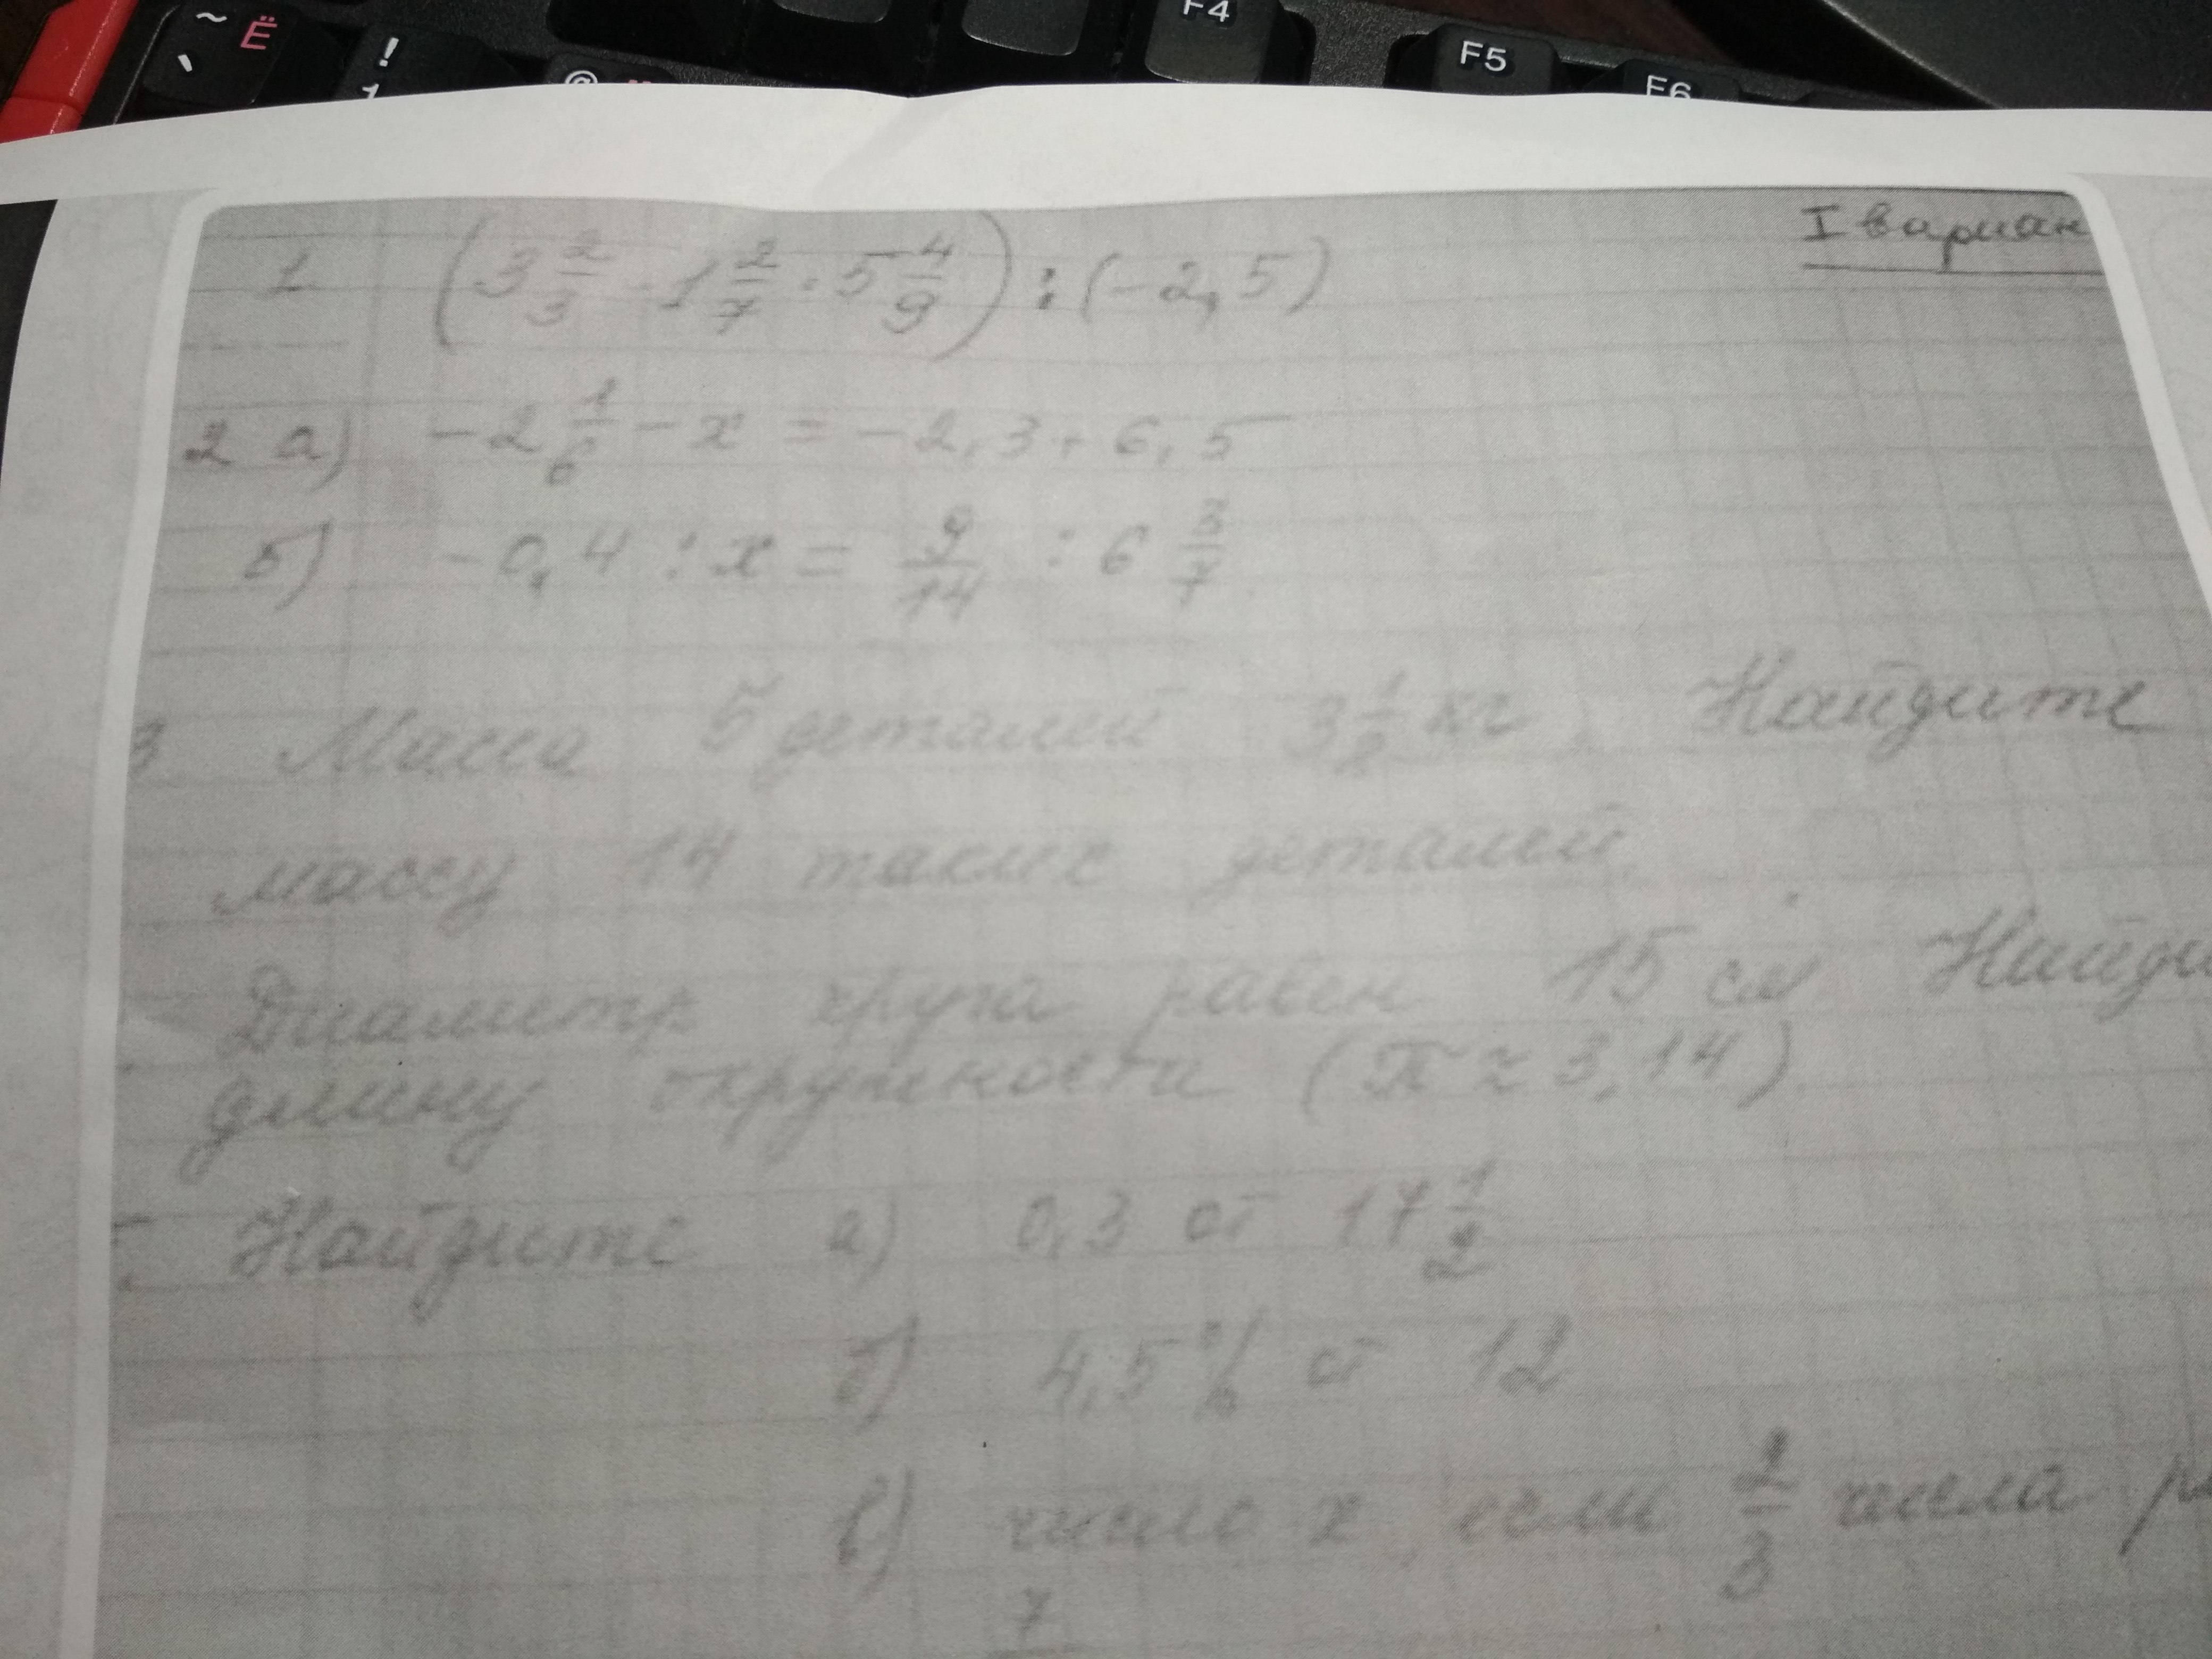 ~ Ё
` ! 1 @ F4 F5 F6
I вариан
1 (3 2/3 - 1 2/7 · 5 4/9) : (-2,5)
2 а) -2 1/6 - x = -2,3 + 6,5
б) -0,4 : x = 9/14 : 6 3/7
3 Масса 5 деталей 3 1/2 кг. Найдите
массу 14 таких деталей.
Диаметр круга равен 15 см Найди
длину окружности (π ≈ 3,14)
Найдите а) 0,3 от 17 1/2
б) 4,5% от 12
в) число x, если 2/3 числа
7